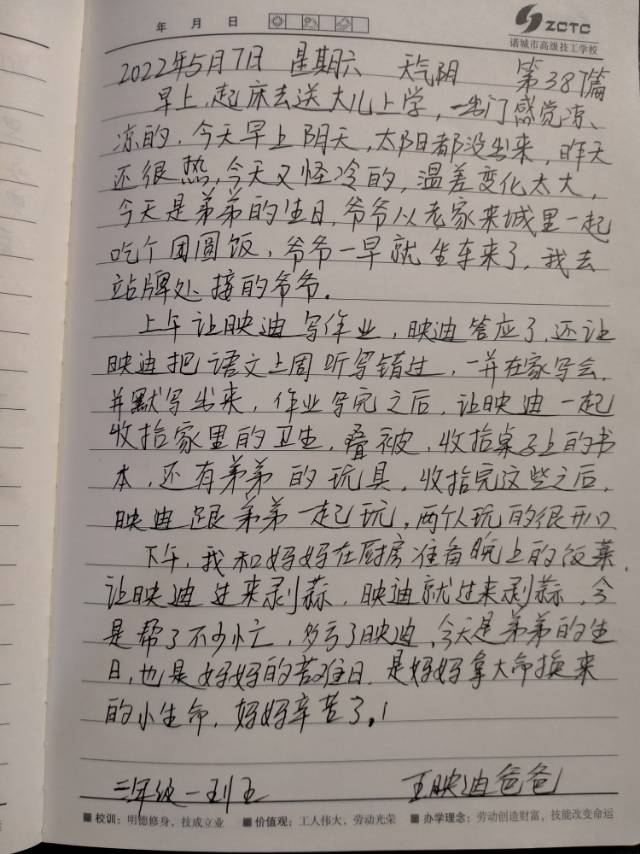 年 月 日
ZCTC
诸城市高级技工学校
2022年5月7日 星期六 天气阴 第387篇
早上,起床去送大儿上学,一出门感觉凉、
凉的,今天早上阴天,太阳都没出来,昨天
还很热,今天又怪冷的,温差变化太大,
今天是弟弟的生日,爷爷从老家来城里一起
吃个团圆饭,爷爷一早就坐车来了,我去
站牌处接的爷爷。
上午让映迪写作业,映迪答应了,还让
映迪把语文上周听写错过,一并在家写会,
并默写出来,作业写完之后,让映迪一起
收拾家里的卫生,叠被,收拾桌子上的书
本,还有弟弟的玩具,收拾完这些之后,
映迪跟弟弟一起玩,两个人玩的很开心
下午,我和妈妈在厨房准备晚上的饭菜
让映迪过来剥蒜,映迪就过来剥蒜,今
是帮了不少忙,多亏了映迪,今天是弟弟的生
日,也是妈妈的苦难日,是妈妈拿大命换来
的小生命,妈妈辛苦了。!
三年级一班王 王映迪爸爸
■校训:明德修身,技成立业 ■价值观:工人伟大,劳动光荣 ■办学理念:劳动创造财富,技能改变命运